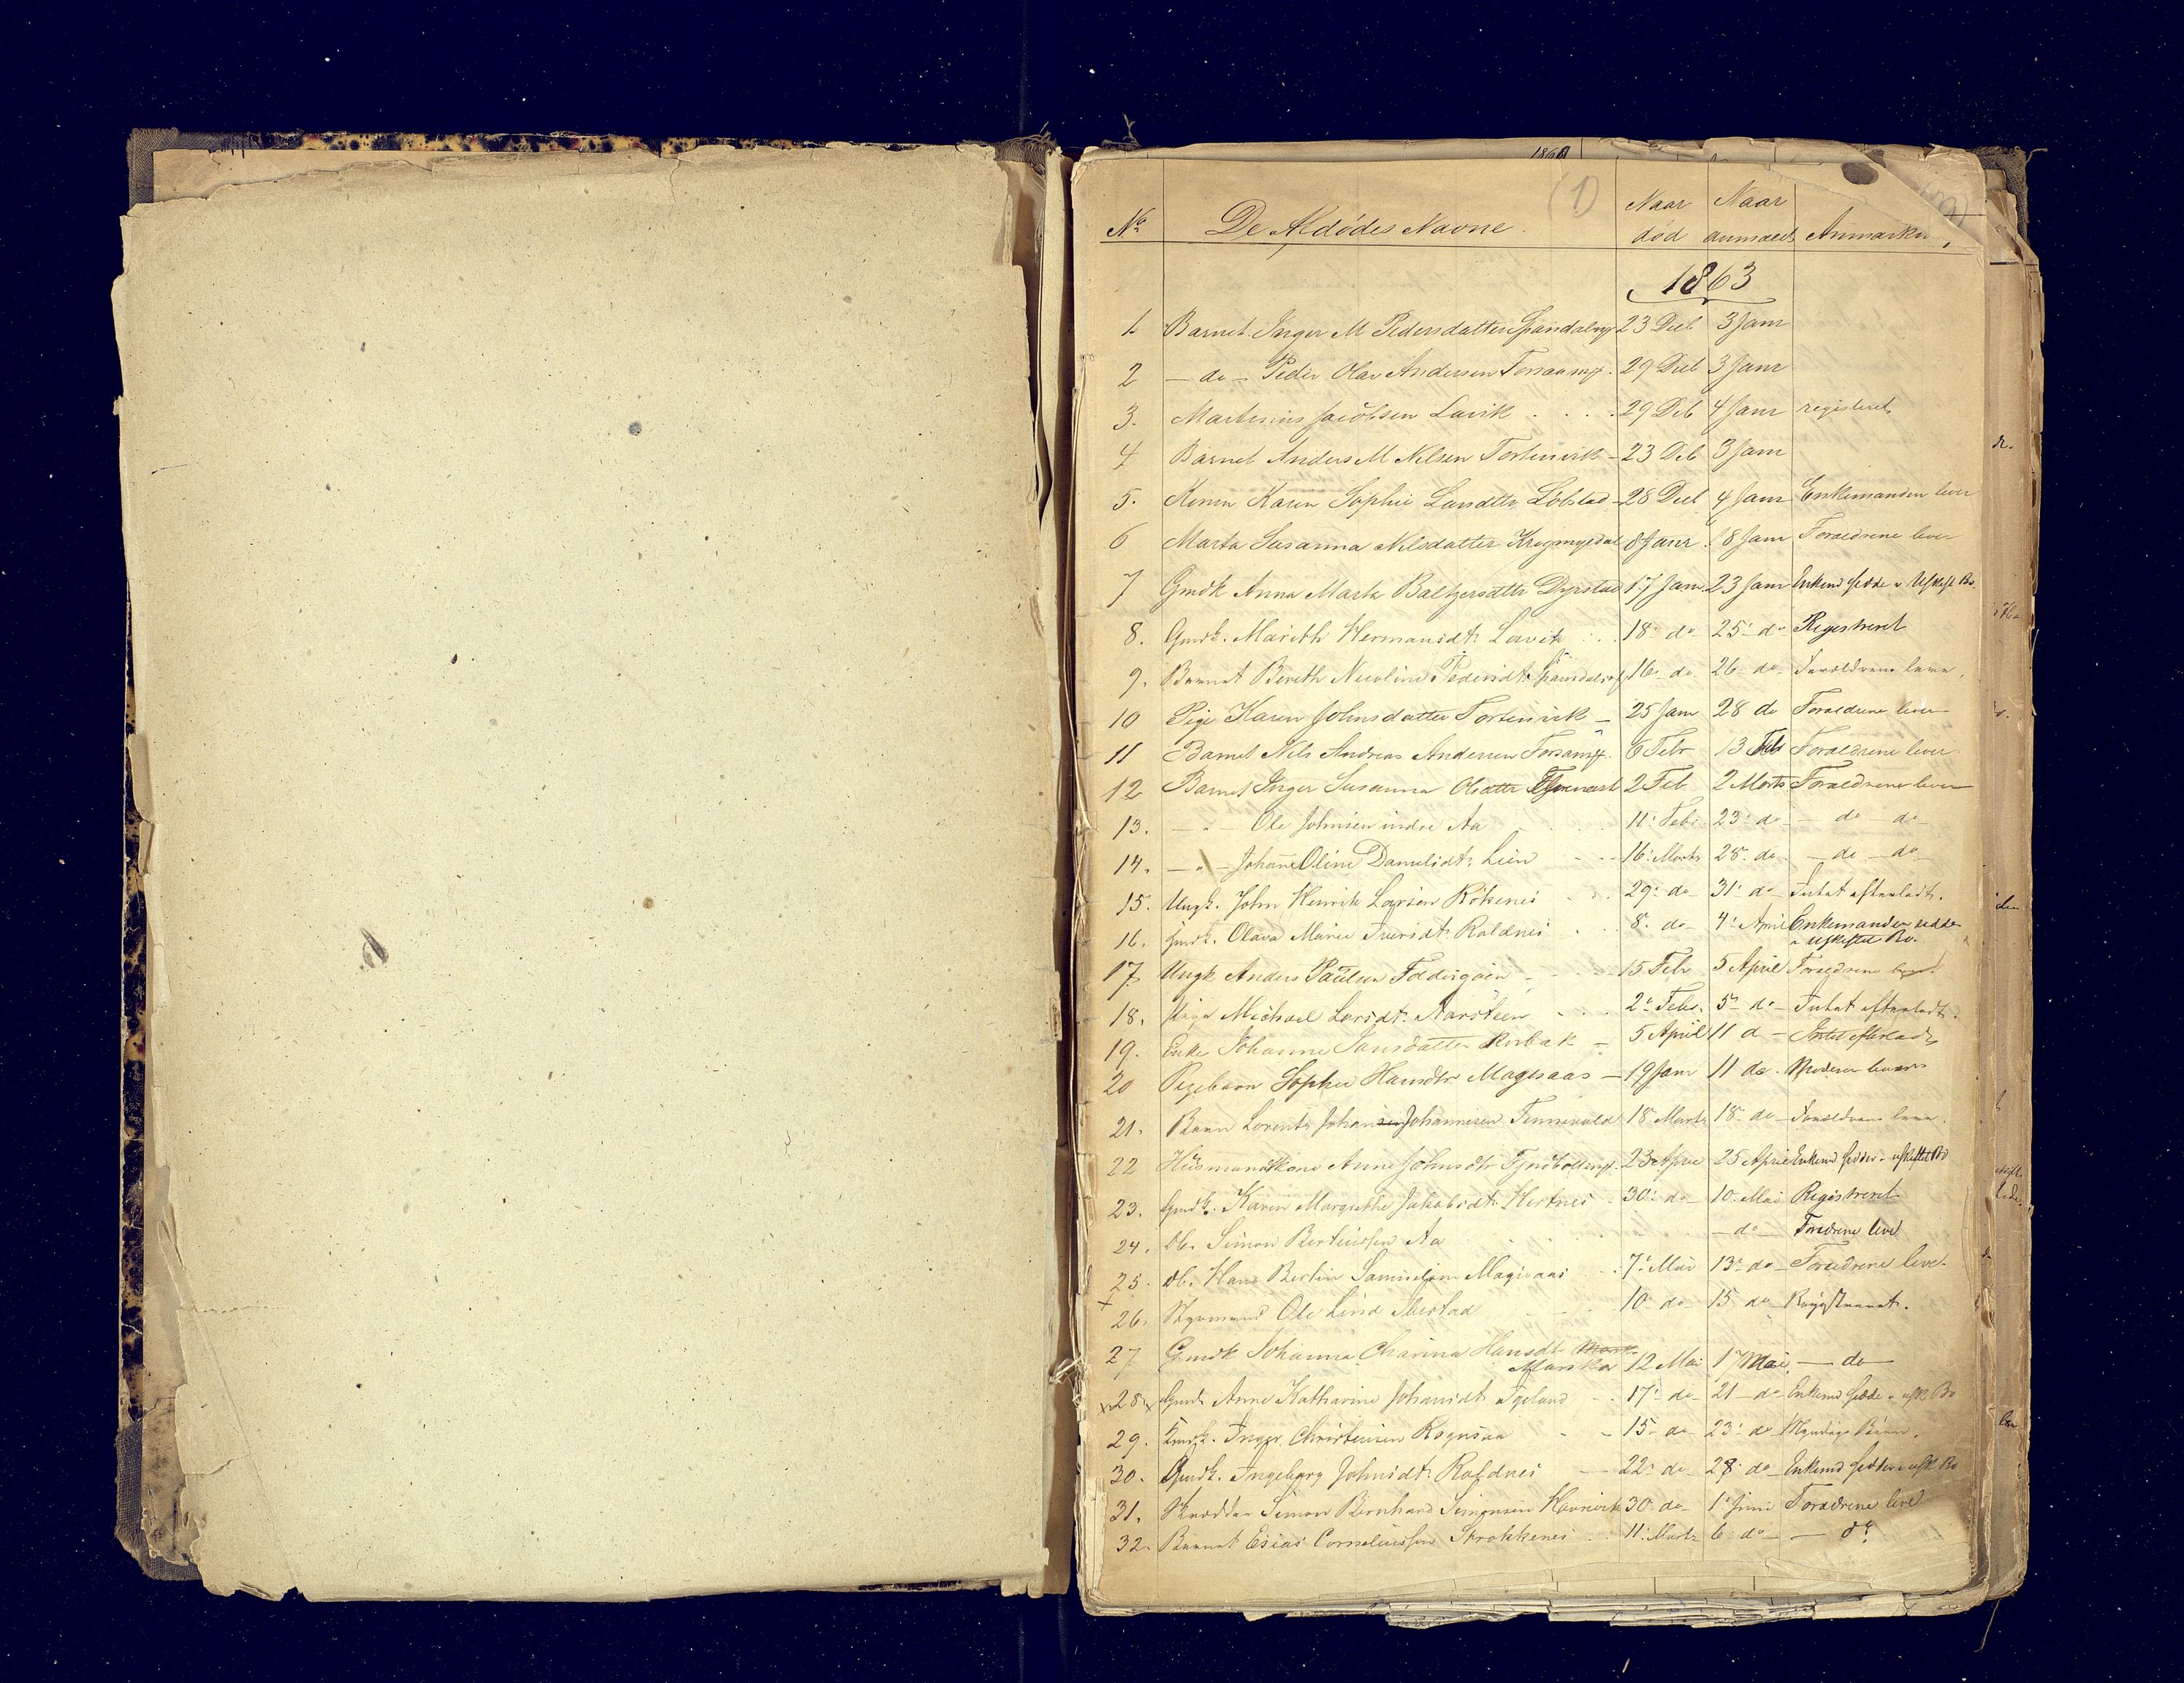 1868
(1)
No De Afdødes Navne. Naar død Naar anmeldt Anmærkn.
1863
1. Barnet Inger M Pedersdatter Spansdalen 23 Deb 3 Janr
2 — do — Peder Olav Andersen Forsaamy. 29 Deb 3 Janr
3. Martinius Jacobsen Lavik 29 Deb 4 Janr registeret
4 Barnet Anders M Nilsen Tortenvik — 23 Deb 3 Janr
5. Konen Karen Sophie Larsdttr Løbstad — 28 Deb 4 Janr Enkemanden lever
6 Marta Susanna Nilsdatter Krogmyrdal 8 Janr 18 Janr Forældrene lever
7 Gmdk Anna Marta Baltzersdttr Dyrstad 17 Janr 23 Janr Enkemd sidder i Uskift Bo
8. Gmdk. Marith Hermansdt: Lavik 18' do 25' do Registreret
9. Barnet Bereth Nicoline Pedersdt: 16 do 26 do Forældrene leve.
10 Pige Karen Johnsdatter Tortenvik — 25 Jan 28 do Forældrene lever
11 Barnet Nils Andreas Andersen Forsaamy. 6 Febr 13 Feb Forældrene lever
12 Barnet Inger Susanna Olsdttr 2 Feb 2 Marts Forældrene lever
13. — " — Ole Johnsen indre Aa 11' Febr 23' do — do — do —
14. — " — Johanne Oline Danielsdt: Lien 16' Marts 28' do — do — do —
15. Ungk. John Henrik Larsen Røkenes 29' do 31' do Intet efterladt.
16. Gmdk. Olava Marie Iversdt: Roldnes 8' do 4' April Enkemanden sidder
i Uskiftet Bo.
17. Ungk Anders Paulsen Foldvigøien 15 Febr 5 April Forældrene lever
18. Pige Michael Larsdt: Aarsteen 2' Febr. 5' do Intet efterladt.
19. Enke Johanne Jansdatter Rorbak — 5 April 11 d — Intet efterladt
20 Pigebarn Sophie Hansdtr Magesaas — 19 Jan 11 do. Moderen lever
21. Barn Lorents Johansen Johannesen Tennevold 18' Marts 18' do Forældrene leve.
22 Husmandskone Anne Johnsdtr 23 April 25 April Enkemd sidder i uskiftet Bo
23. Gmdk. Karen Margrethe Jakobsdt: Hertnes 30' do 10' Mai Registreret
24. db. Simon Bertheussen Aa — do — Forældrene leve
25. db. Hans Bertin Samuelsen Magesaas 7' Mai 13' do Forældrene leve.
26. Styrmand Ole Lind Ibestad 10 do 15 do Registreret.
27 Gmdk Johanna Charina Hansdt.
12 Mai 17 Mai — do —
28. Gmdk. Anne Katharine Johansdt: 17' do 21 do Enkemd sidder i uskt Bo
29. Gmdk. Inger Christensen Rognsaa 15' do 23' do Myndige Børn.
30. Gmdk. Ingeborg Johnsdt: Roldnes 22' do 28' do Enkemd sidder i uskt Bo
31. Simon Bernhard Simonsen Havnvik 30' do 1' Juni Forældrene leve
32. Barnet Esias Corneliussen Krokkenes 11' Marts 6' do — do